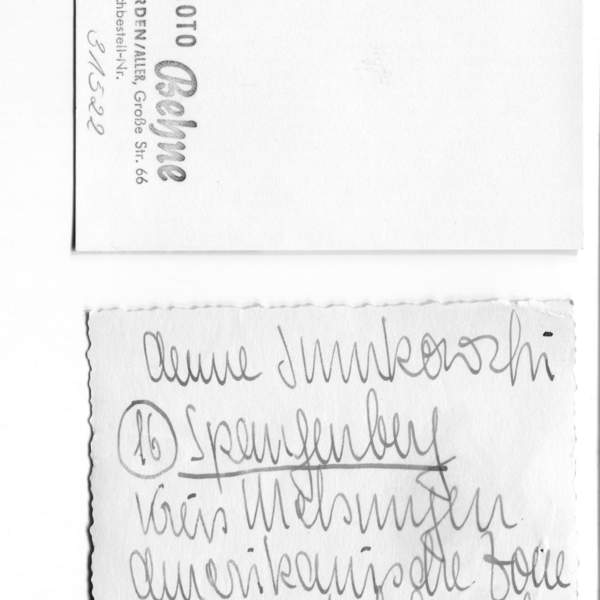 OTO Behne
RDEN/ALLER, Große Str. 66
hbestell-Nr.
31522
16 Spangenberg
Kreis Melsungen
amerikanische Zone